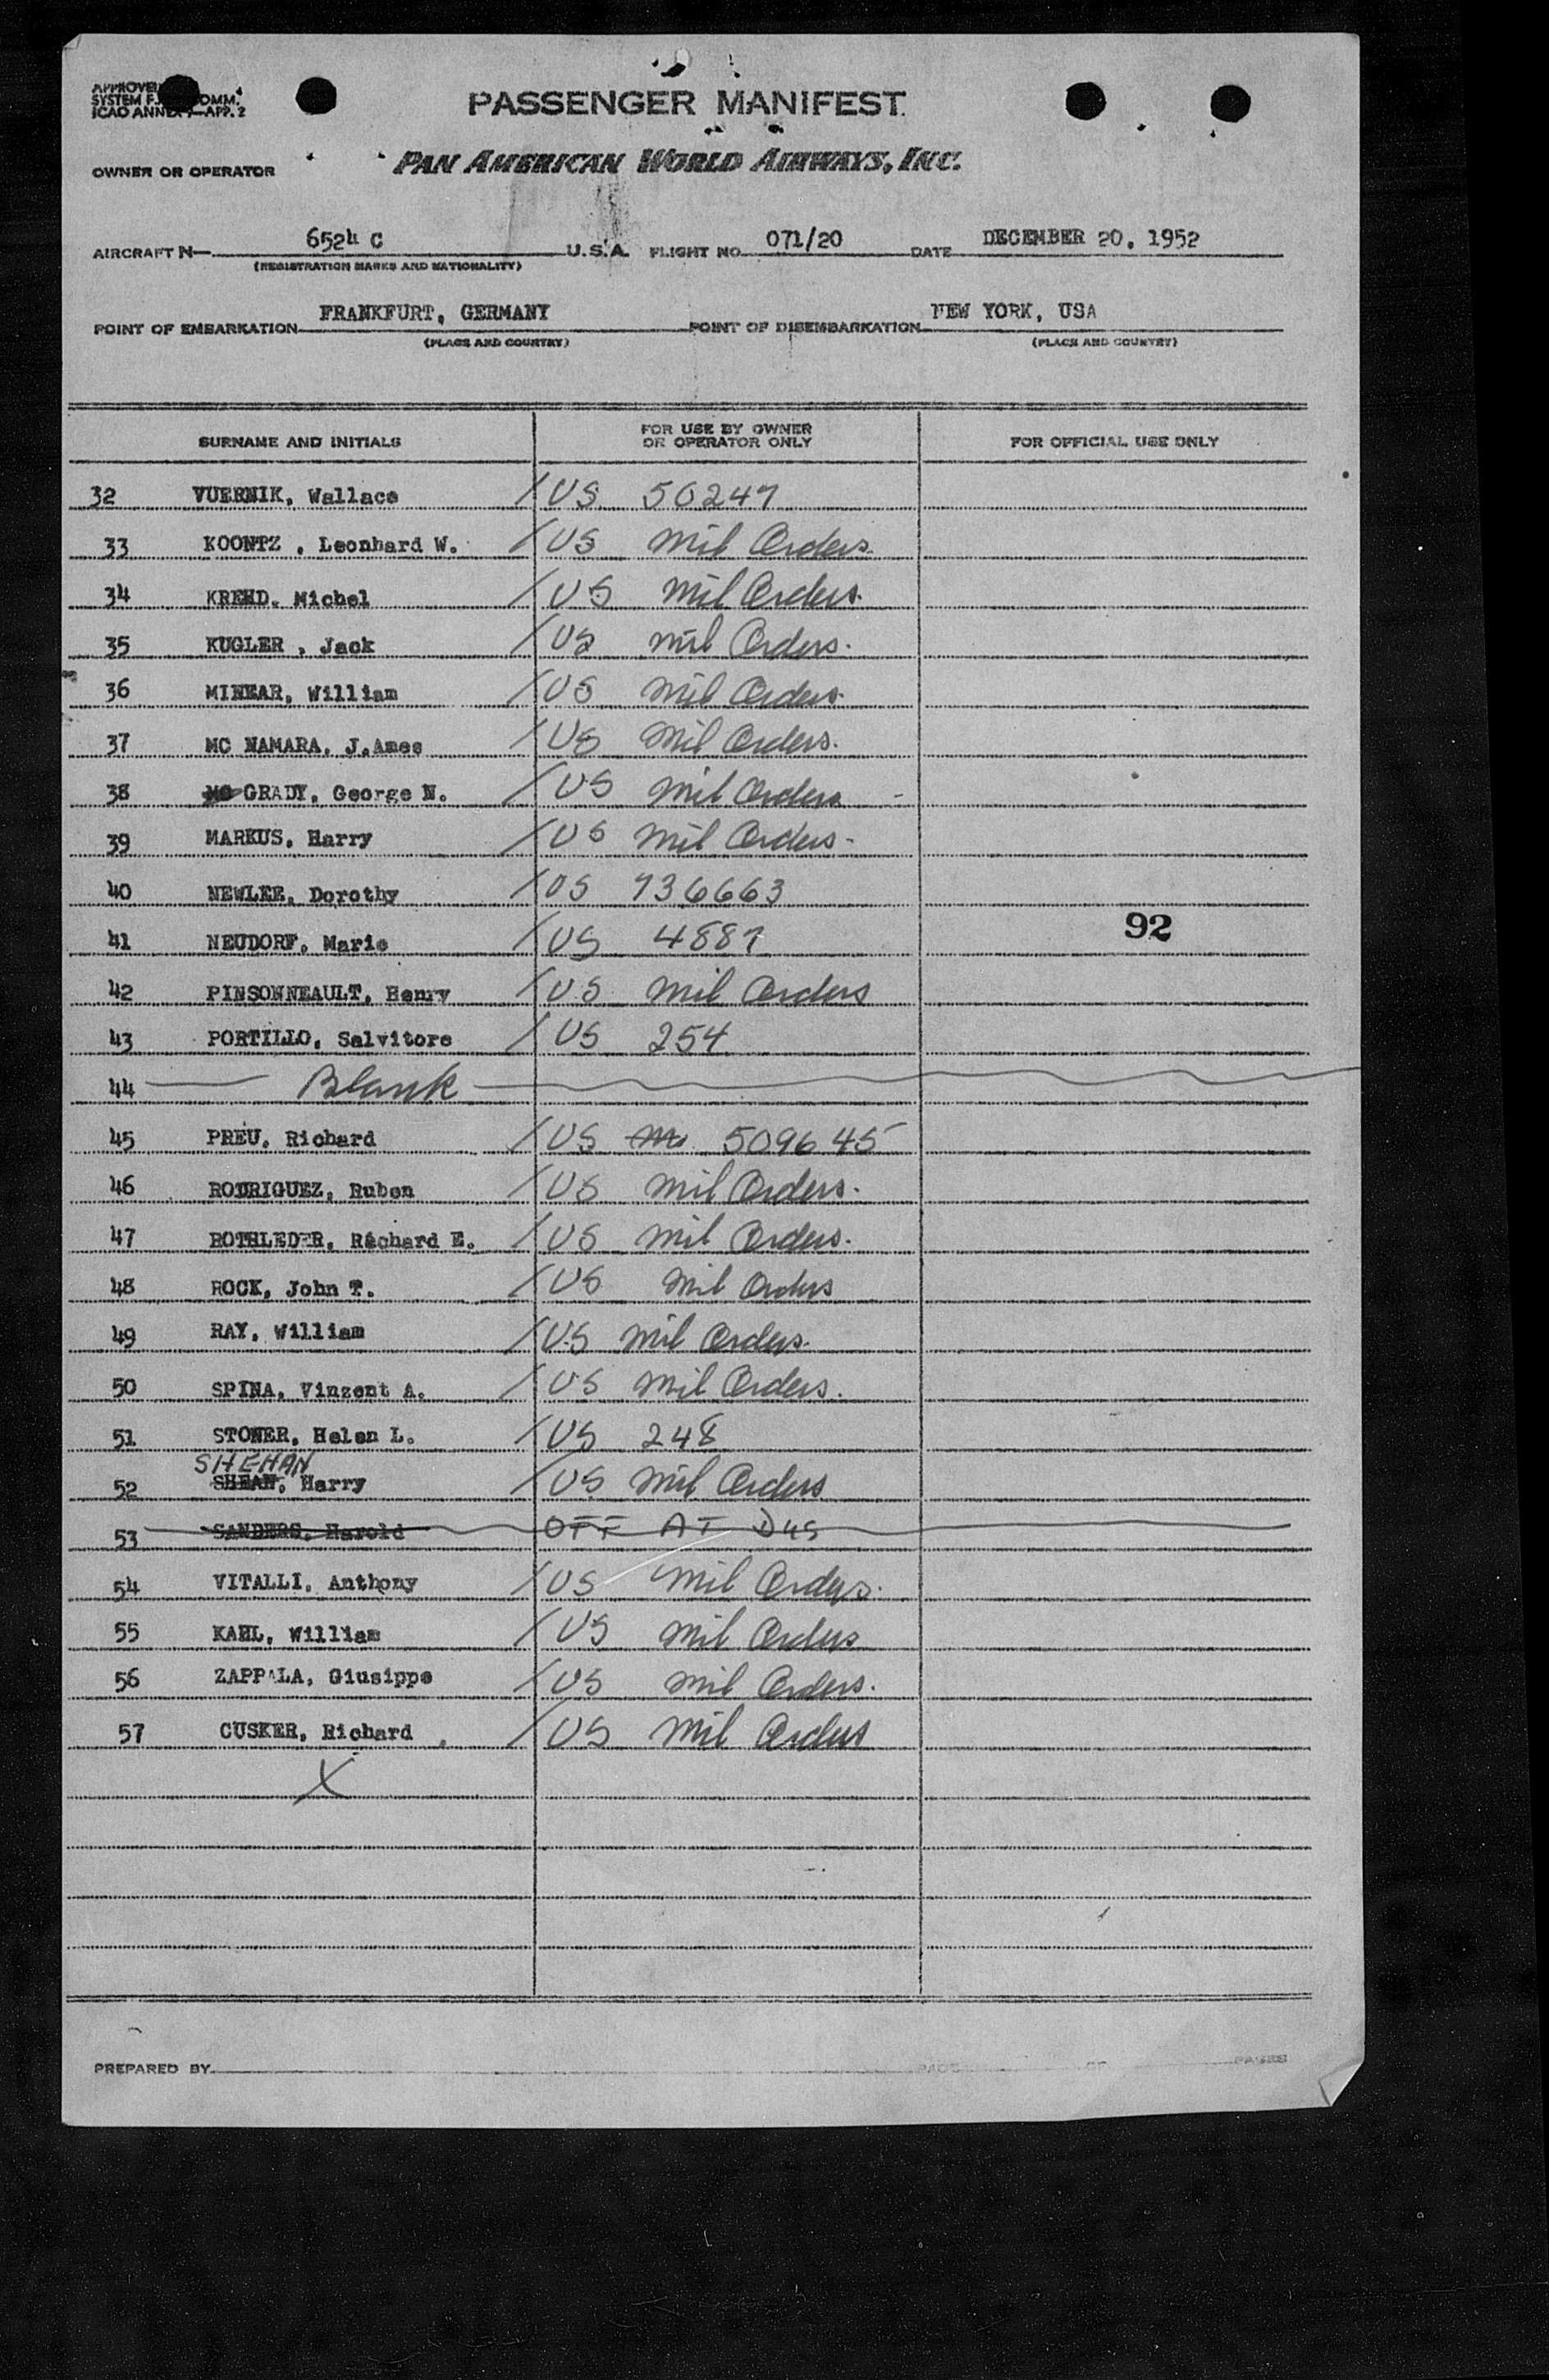 PASSENGER MANIFEST
APPROVED
SYSTEM F. COMM.
ICAO ANNEX 9—APP. 2
OWNER OR OPERATOR PAN AMERICAN WORLD AIRWAYS, INC.
AIRCRAFT N— 6524 C U.S.A. FLIGHT NO. 071/20 DATE DECEMBER 20, 1952
(REGISTRATION MARKS AND NATIONALITY)
POINT OF EMBARKATION FRANKFURT, GERMANY POINT OF DISEMBARKATION NEW YORK, USA
(PLACE AND COUNTRY) (PLACE AND COUNTRY)
SURNAME AND INITIALS FOR USE BY OWNER OR OPERATOR ONLY FOR OFFICIAL USE ONLY
32 VUERNIK, Wallace / US 50247
33 KOONTZ , Leonhard W. / US Mil Orders.
34 KREHD, Michel / US Mil Orders.
35 KUGLER , Jack / US Mil Orders.
36 MINEAR, William / US Mil Orders.
37 MC NAMARA, J.Ames / US Mil Orders.
38 MC GRADY, George N. / US Mil Orders -
39 MARKUS, Harry / US Mil Orders -
40 NEWLEE, Dorothy / US 736663
41 NEUDORF, Marie / US 4887 92
42 PINSONNEAULT, Henry / US Mil Orders
43 PORTILLO, Salvitore / US 254
44 Blank
45 PREU, Richard / US 509645
46 RODRIGUEZ, Ruben / US Mil Orders.
47 ROTHLEDER, Rachard E. / US Mil Orders.
48 ROCK, John T. / US Mil Orders
49 RAY, William / US Mil Orders.
50 SPINA, Vinzent A. / US Mil Orders.
51 STONER, Helen L. / US 248
SHEHAN
52 SHEAN, Harry / US Mil Orders
53 SANDERS, Harold OFF AT DUS
54 VITALLI, Anthony / US Mil Orders.
55 KAHL, William / US Mil Orders
56 ZAPPALA, Giusippe / US Mil Orders.
57 CUSKER, Richard / US Mil Orders
X
PREPARED BY PAGE OF PAGES